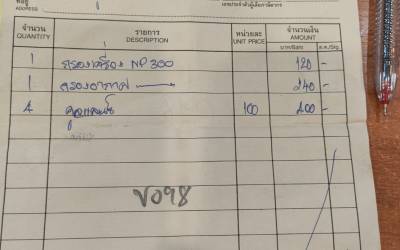 ที่อยู่
ADDRESS
เลขประจำตัวผู้เสียภาษีอากร
จำนวน รายการ หน่วยละ จำนวนเงิน
QUANTITY DESCRIPTION UNIT PRICE AMOUNT
บาท/Baht ส.ต./Stg.
1 กรองเครื่อง NP 300 120 -
1 กรองอากาศ 240 -
4 100 400 -